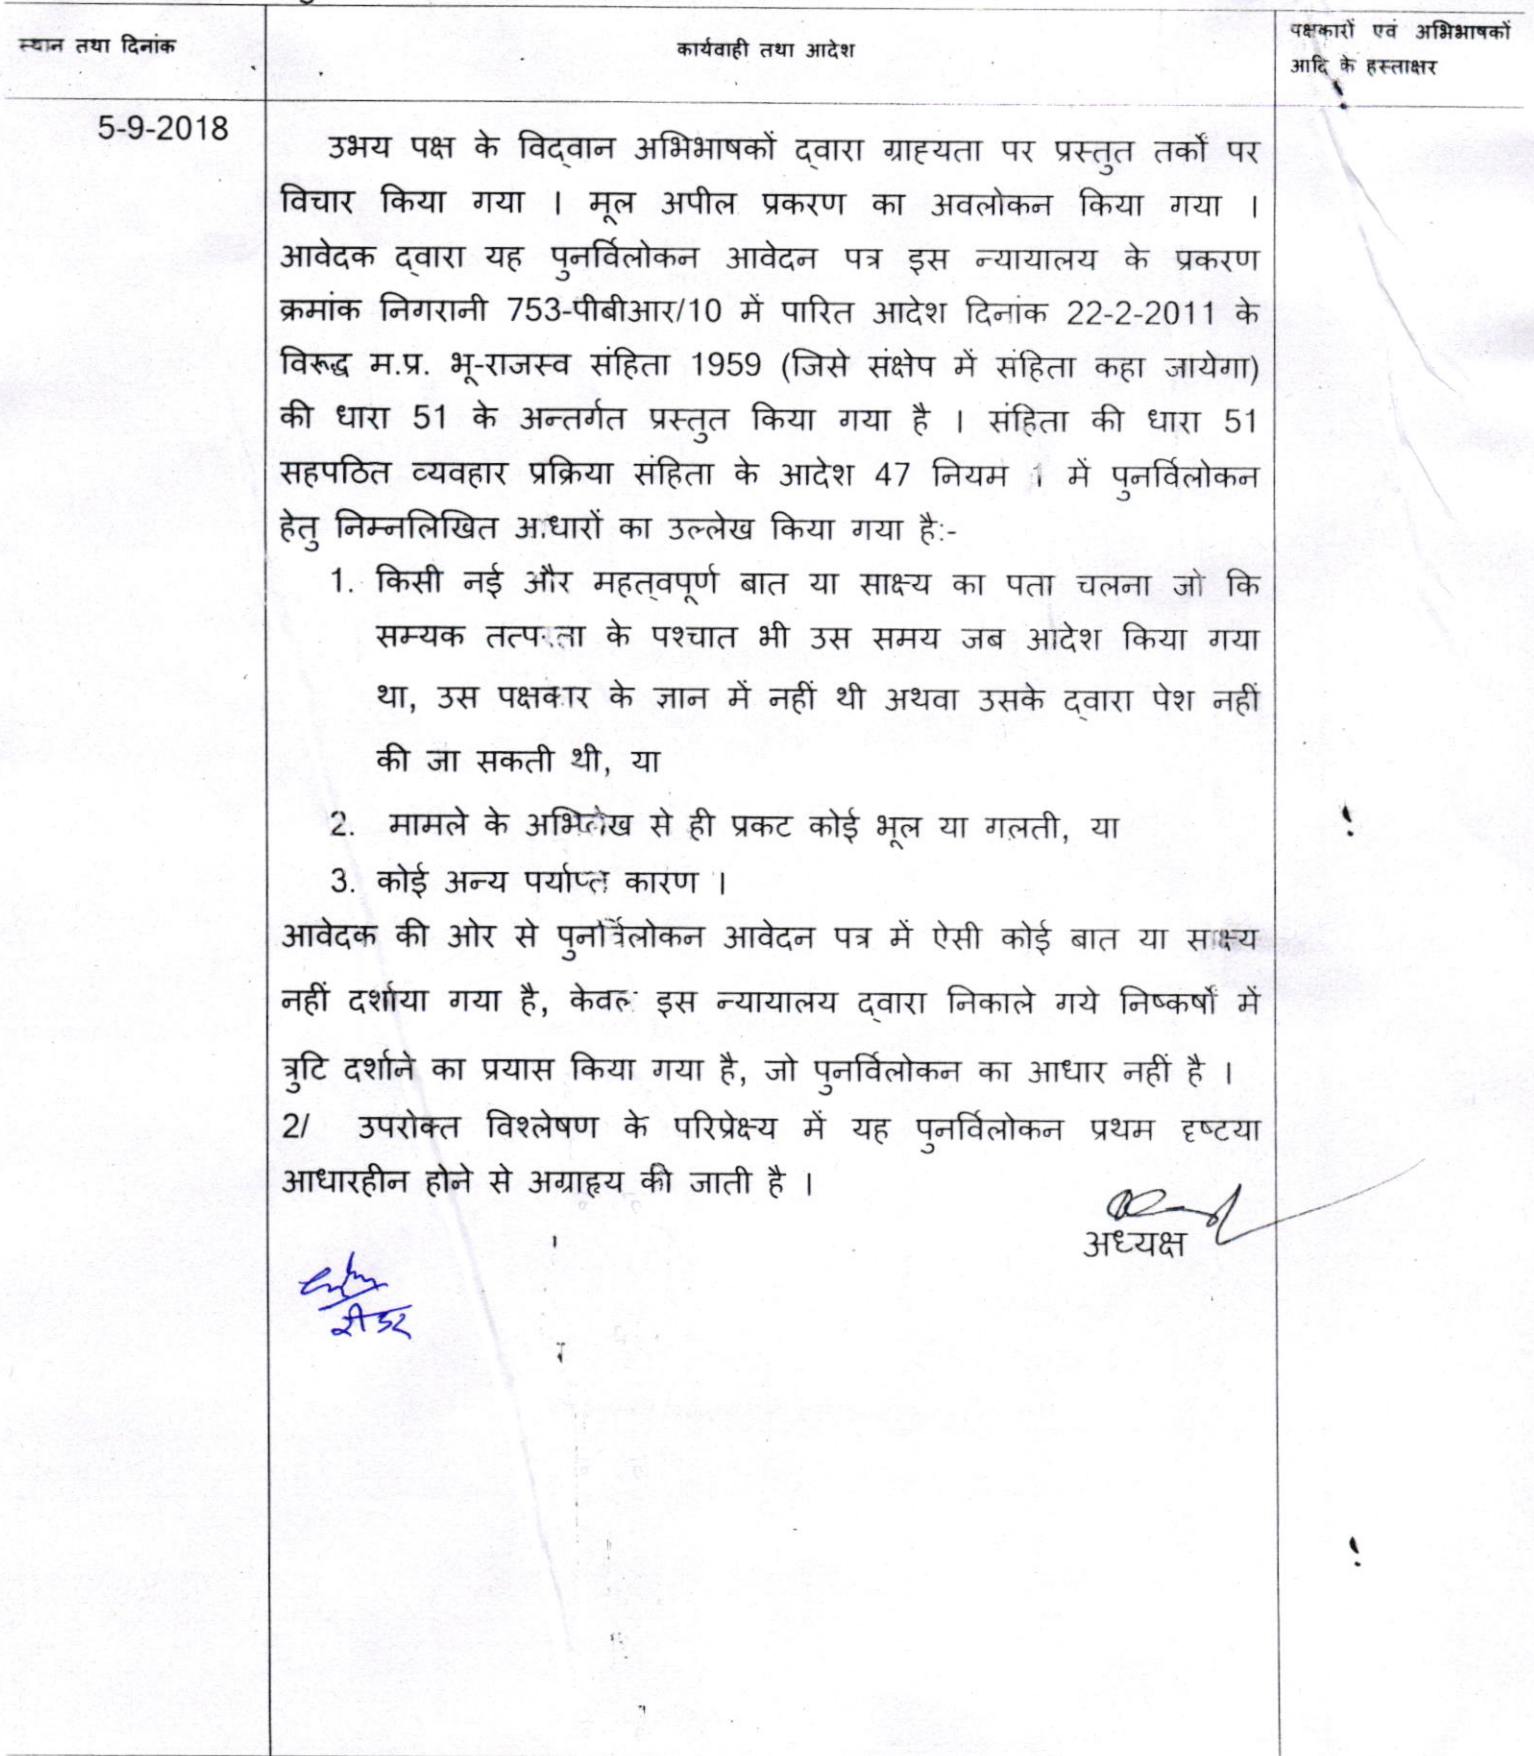 स्थान तथा दिनांक
कार्यवाही तथा आदेश
पक्षकारों एवं अभिभाषकों
आदि के हस्ताक्षर
5-9-2018
उभय पक्ष के विद्वान अभिभाषकों द्वारा ग्राह्यता पर प्रस्तुत तर्कों पर
विचार किया गया । मूल अपील प्रकरण का अवलोकन किया गया ।
आवेदक द्वारा यह पुनर्विलोकन आवेदन पत्र इस न्यायालय के प्रकरण
क्रमांक निगरानी 753-पीबीआर/10 में पारित आदेश दिनांक 22-2-2011 के
विरूद्ध म.प्र. भू-राजस्व संहिता 1959 (जिसे संक्षेप में संहिता कहा जायेगा)
की धारा 51 के अन्तर्गत प्रस्तुत किया गया है । संहिता की धारा 51
सहपठित व्यवहार प्रक्रिया संहिता के आदेश 47 नियम 1 में पुनर्विलोकन
हेतु निम्नलिखित आधारों का उल्लेख किया गया है:-
1. किसी नई और महत्वपूर्ण बात या साक्ष्य का पता चलना जो कि
सम्यक तत्परता के पश्चात भी उस समय जब आदेश किया गया
था, उस पक्षकार के ज्ञान में नहीं थी अथवा उसके द्वारा पेश नहीं
की जा सकती थी, या
2. मामले के अभिलेख से ही प्रकट कोई भूल या गलती, या
3. कोई अन्य पर्याप्त कारण ।
आवेदक की ओर से पुनर्विलोकन आवेदन पत्र में ऐसी कोई बात या साक्ष्य
नहीं दर्शाया गया है, केवल इस न्यायालय द्वारा निकाले गये निष्कर्षों में
त्रुटि दर्शाने का प्रयास किया गया है, जो पुनर्विलोकन का आधार नहीं है ।
2/ उपरोक्त विश्लेषण के परिप्रेक्ष्य में यह पुनर्विलोकन प्रथम दृष्टया
आधारहीन होने से अग्राह्य की जाती है ।
अध्यक्ष
रीडर